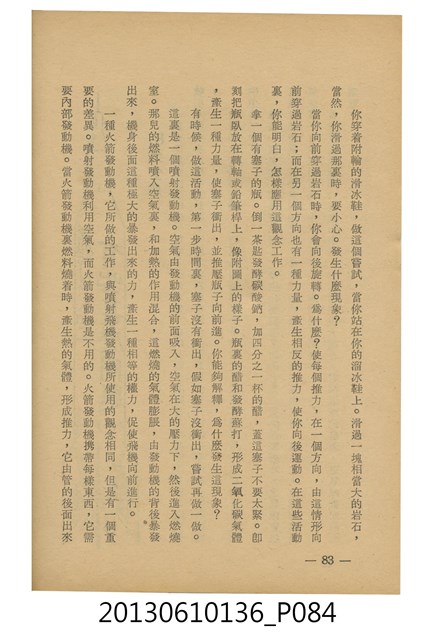 你穿着附輪的滑冰鞋，做這個嘗試，當你站在你的溜冰鞋上。滑過一塊相當大的岩石，
當然，你滑過那裏時，要小心。發生什麼現象？
當你向前穿過岩石時，你會向後旋轉。爲什麼？使每個推力，在一個方向，由這情形向
前穿過岩石；而在另一個方向也有一種力量，產生相反的推力，使你向後運動。在這些活動
裏，你能明白，怎樣應用這觀念工作。
拿一個有塞子的瓶。倒一茶匙發酵碳酸鈉，加四分之一杯的醋，蓋這塞子不要太緊。卽
刻把瓶臥放在轉軸或鉛筆桿上，像附圖上的樣子。瓶裏的醋和發酵蘇打，形成二氧化碳氣體
，產生一種力量，使塞子衝出，並推壓瓶子向前進。你能夠解釋，爲什麼發生這現象？
有時候，做這活動，第一步時間裏，塞子沒有衝出，假如塞子沒衝出，嘗試再做一做。
這裏是一個噴射發動機。空氣由發動機的前面吸入，空氣在大的壓力下，然後進入燃燒
室。那兒的燃料噴入空氣裏，和加熱的作用混合，這燃燒的氣體膨脹，由發動機的背後暴發
出來，機身後面這種極大的暴發出來的力，產生一種相等的權力，促使飛機向前進行。
一種火箭發動機，它所做的工作，與噴射飛機發動機所使用的觀念相同，但是有一個重
要的差異。噴射發動機利用空氣，而火箭發動機是不用的。火箭發動機携帶每樣東西，它需
要內部發動機。當火箭發動機裏燃料燒着時，產生熱的氣體，形成推力，它由管的後面出來
— 83 —
20130610136_P084